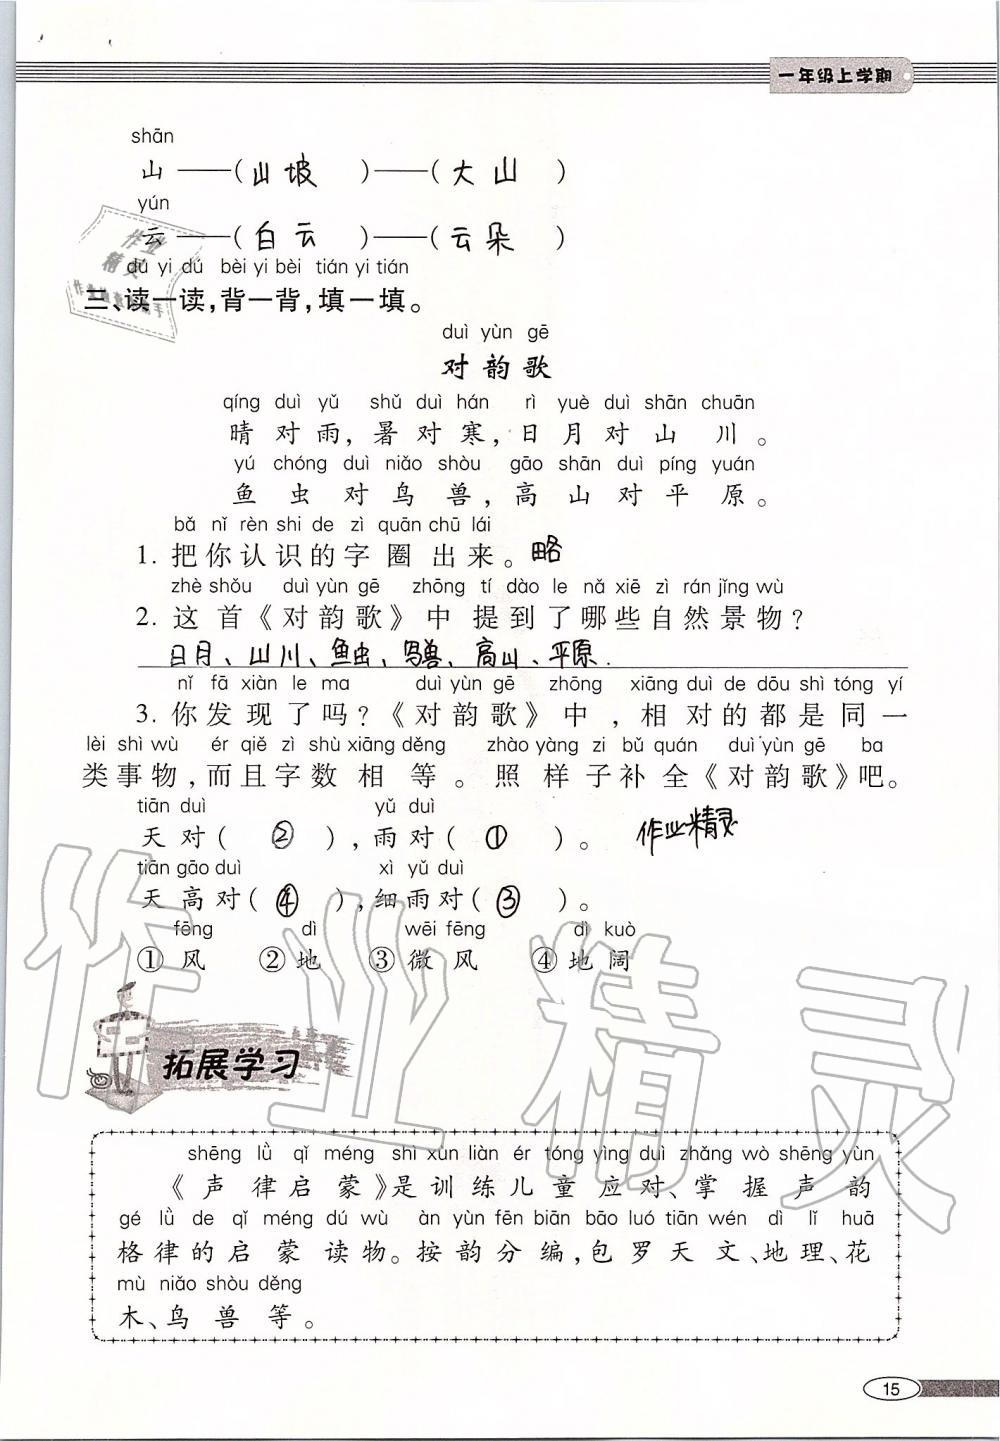 一年级上学期
shān
山——(山坡 )——(大山 )
yún
云——(白云 )——(云朵 )
dú yi dú bèi yi bèi tián yi tián
三、读一读,背一背,填一填。
duì yùn gē
对韵歌
qíng duì yǔ shǔ duì hán rì yuè duì shān chuān
晴对雨,暑对寒,日月对山川。
yú chóng duì niǎo shòu gāo shān duì píng yuán
鱼虫对鸟兽,高山对平原。
bǎ nǐ rèn shi de zì quān chū lái
1. 把你认识的字圈出来。略
zhè shǒu duì yùn gē zhōng tí dào le nǎ xiē zì rán jǐng wù
2. 这首《对韵歌》中提到了哪些自然景物?
日月、山川、鱼虫、鸟兽、高山、平原.
nǐ fā xiàn le ma duì yùn gē zhōng xiāng duì de dōu shì tóng yí
3. 你发现了吗?《对韵歌》中,相对的都是同一
lèi shì wù ér qiě zì shù xiāng děng zhào yàng zi bǔ quán duì yùn gē ba
类事物,而且字数相等。照样子补全《对韵歌》吧。
tiān duì yǔ duì
天对( ② ),雨对( ① )。 作业精灵
tiān gāo duì xì yǔ duì
天高对( ④ ),细雨对( ③ )。
fēng dì wēi fēng dì kuò
①风 ②地 ③微风 ④地阔
拓展学习
shēng lǜ qǐ méng shì xùn liàn ér tóng yìng duì zhǎng wò shēng yùn
《声律启蒙》是训练儿童应对、掌握声韵
gé lǜ de qǐ méng dú wù àn yùn fēn biān bāo luó tiān wén dì lǐ huā
格律的启蒙读物。按韵分编,包罗天文、地理、花
mù niǎo shòu děng
木、鸟兽等。
15
作业精灵